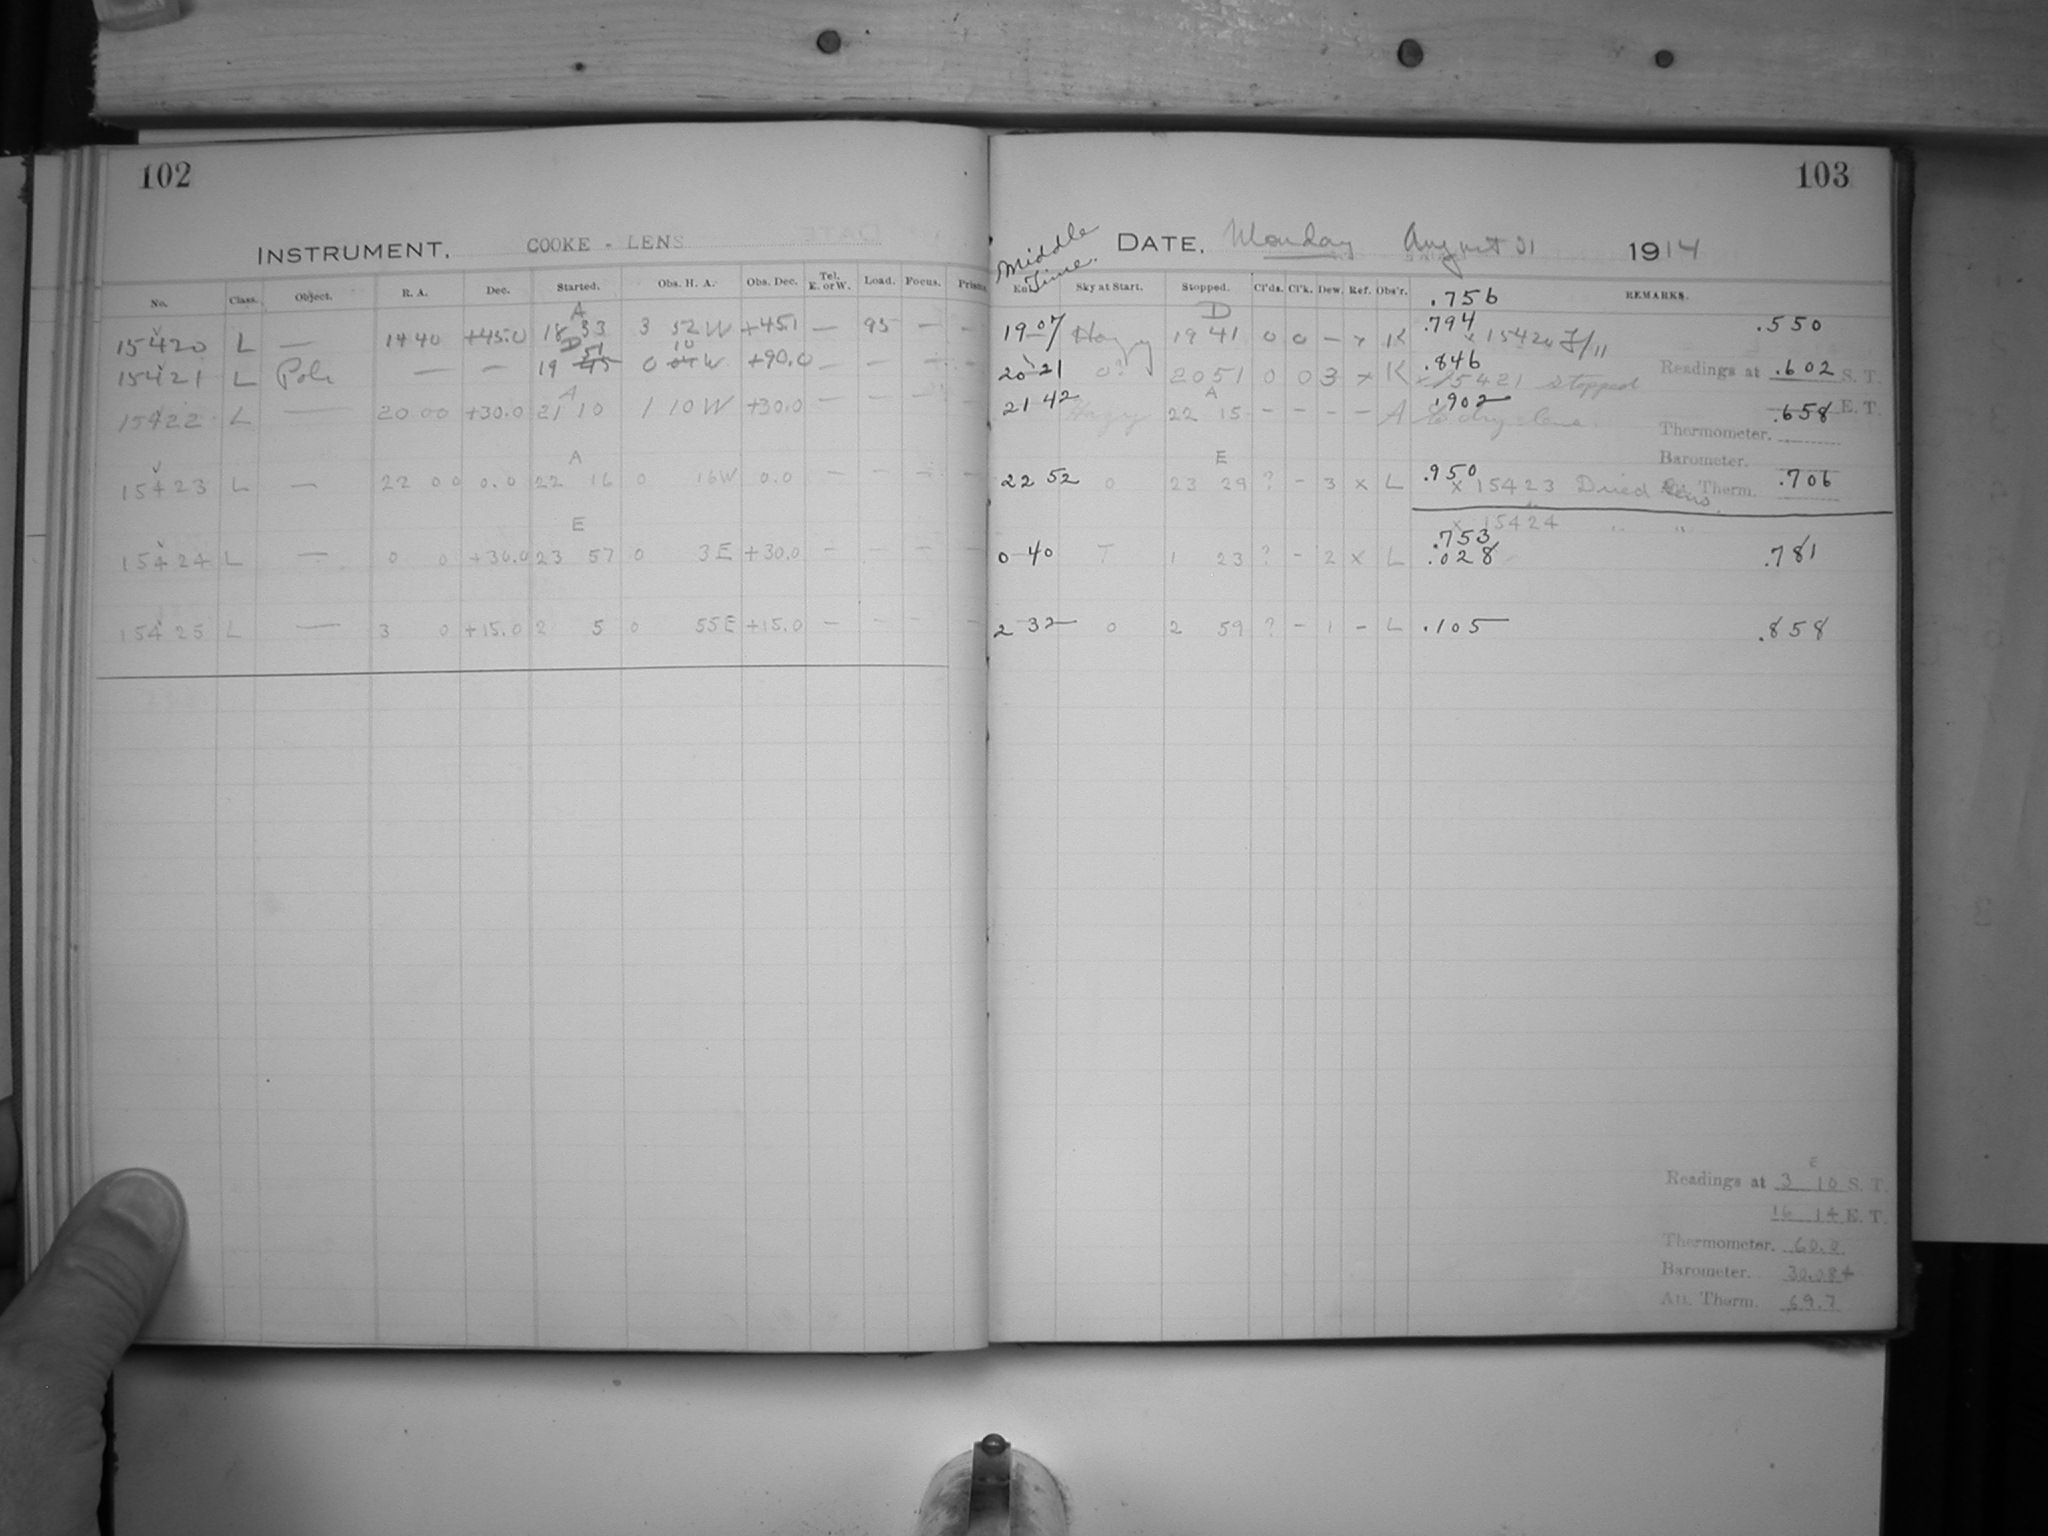 102
INSTRUMENT. COOKE - LENS
No. Class. Object. R. A. Dec. Started. Obs. H. A. Obs. Dec. Tel. E. or W. Load. Focus.
A
15420 L — 14 40 +45.0 18 33 3 52 W +45.1 — 95 — —
D 51 10
15421 L Pole — — 19 45 0 04 W +90.0 — — — —
A
15422 L — 20 00 +30.0 21 10 1 10 W +30.0 — — — —
A
15423 L — 22 00 0.0 22 16 0 16 W 0.0 — — — —
E
15424 L — 0 0 +30.0 23 57 0 3 E +30.0 - - - -
15425 L — 3 0 +15.0 2 5 0 55 E +15.0 - - - -
103
Middle Time.
DATE. Monday August 31 1914
Sky at Start. Stopped. Cl'ds. Cl'k. Dew. Ref. Obs'r. REMARKS.
.756
D
19 07 Hazy 19 41 0 0 — x K .794 x 15420 F/11 .550
20 21 0? 20 51 0 0 3 x K .846 x 15421 stopped Readings at .602 S. T.
A
21 42 Hazy 22 15 - - - - A .902 to dry lens. .658 E. T.
Thermometer.
Barometer.
E
22 52 0 23 29 ? - 3 x L .950 x 15423 Dried lens. Att. Therm. .706
x 15424 " "
.753
0 40 T 1 23 ? - 2 x L .028 .781
2 32 0 2 59 ? - 1 - L .105 .858
E
Readings at 3 10 S. T.
16 14 E. T.
Thermometer. 60.0
Barometer. 30.084
Att. Therm. 69.7